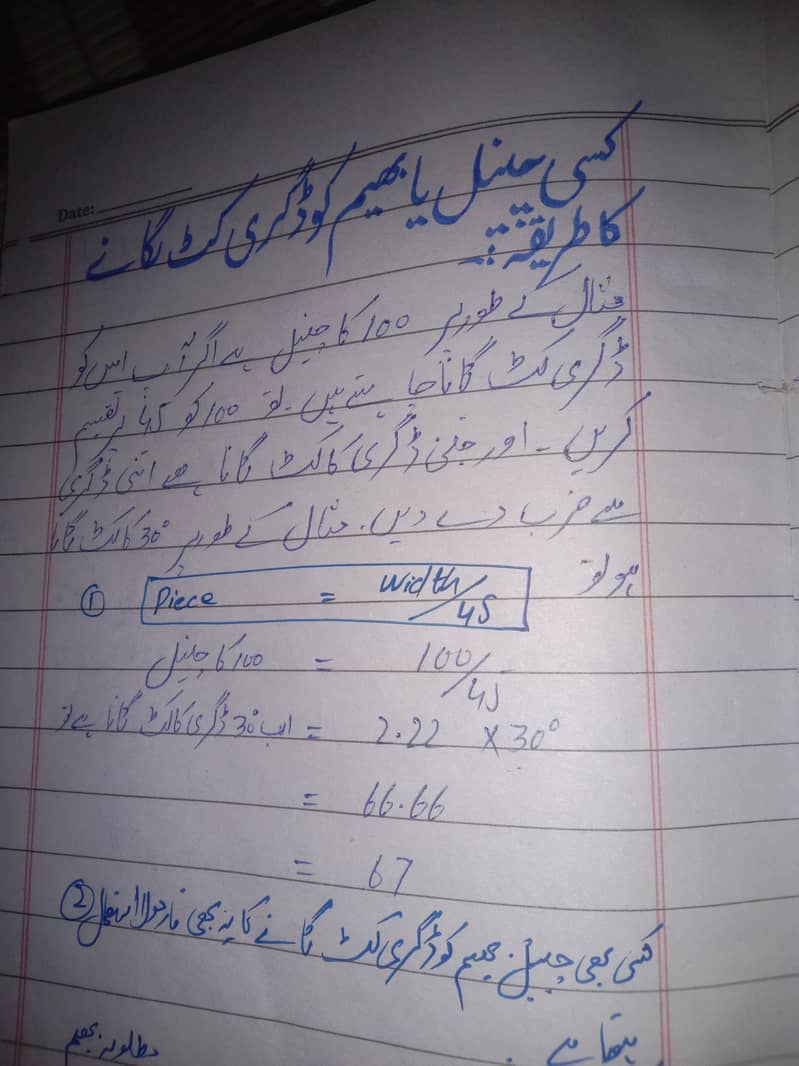 Date:
کسی چینل یا بھیم کو ڈگری کٹ لگانے
کا طریقہ:۔
مثال کے طور پر 100 کا چینل ہے اگر آپ اس کو
ڈگری کٹ لگانا چاہتے ہیں۔ تو 100 کو 45 پر تقسیم
کریں۔ اور جتنی ڈگری کا کٹ لگانا ہے اتنی ڈگری
سے ضرب دے دیں۔ مثال کے طور پر 30° کا کٹ لگانا
ہو تو
① Piece = Width/45
100 کا چینل = 100/45
اب 30° ڈگری کا کٹ لگانا ہے تو = 2.22 × 30°
= 66.66
= 67
② کسی بھی چینل. بھیم کو ڈگری کٹ لگانے کا یہ بھی فارمولا استعمال
ہوتا ہے. مطلوبہ بھیم